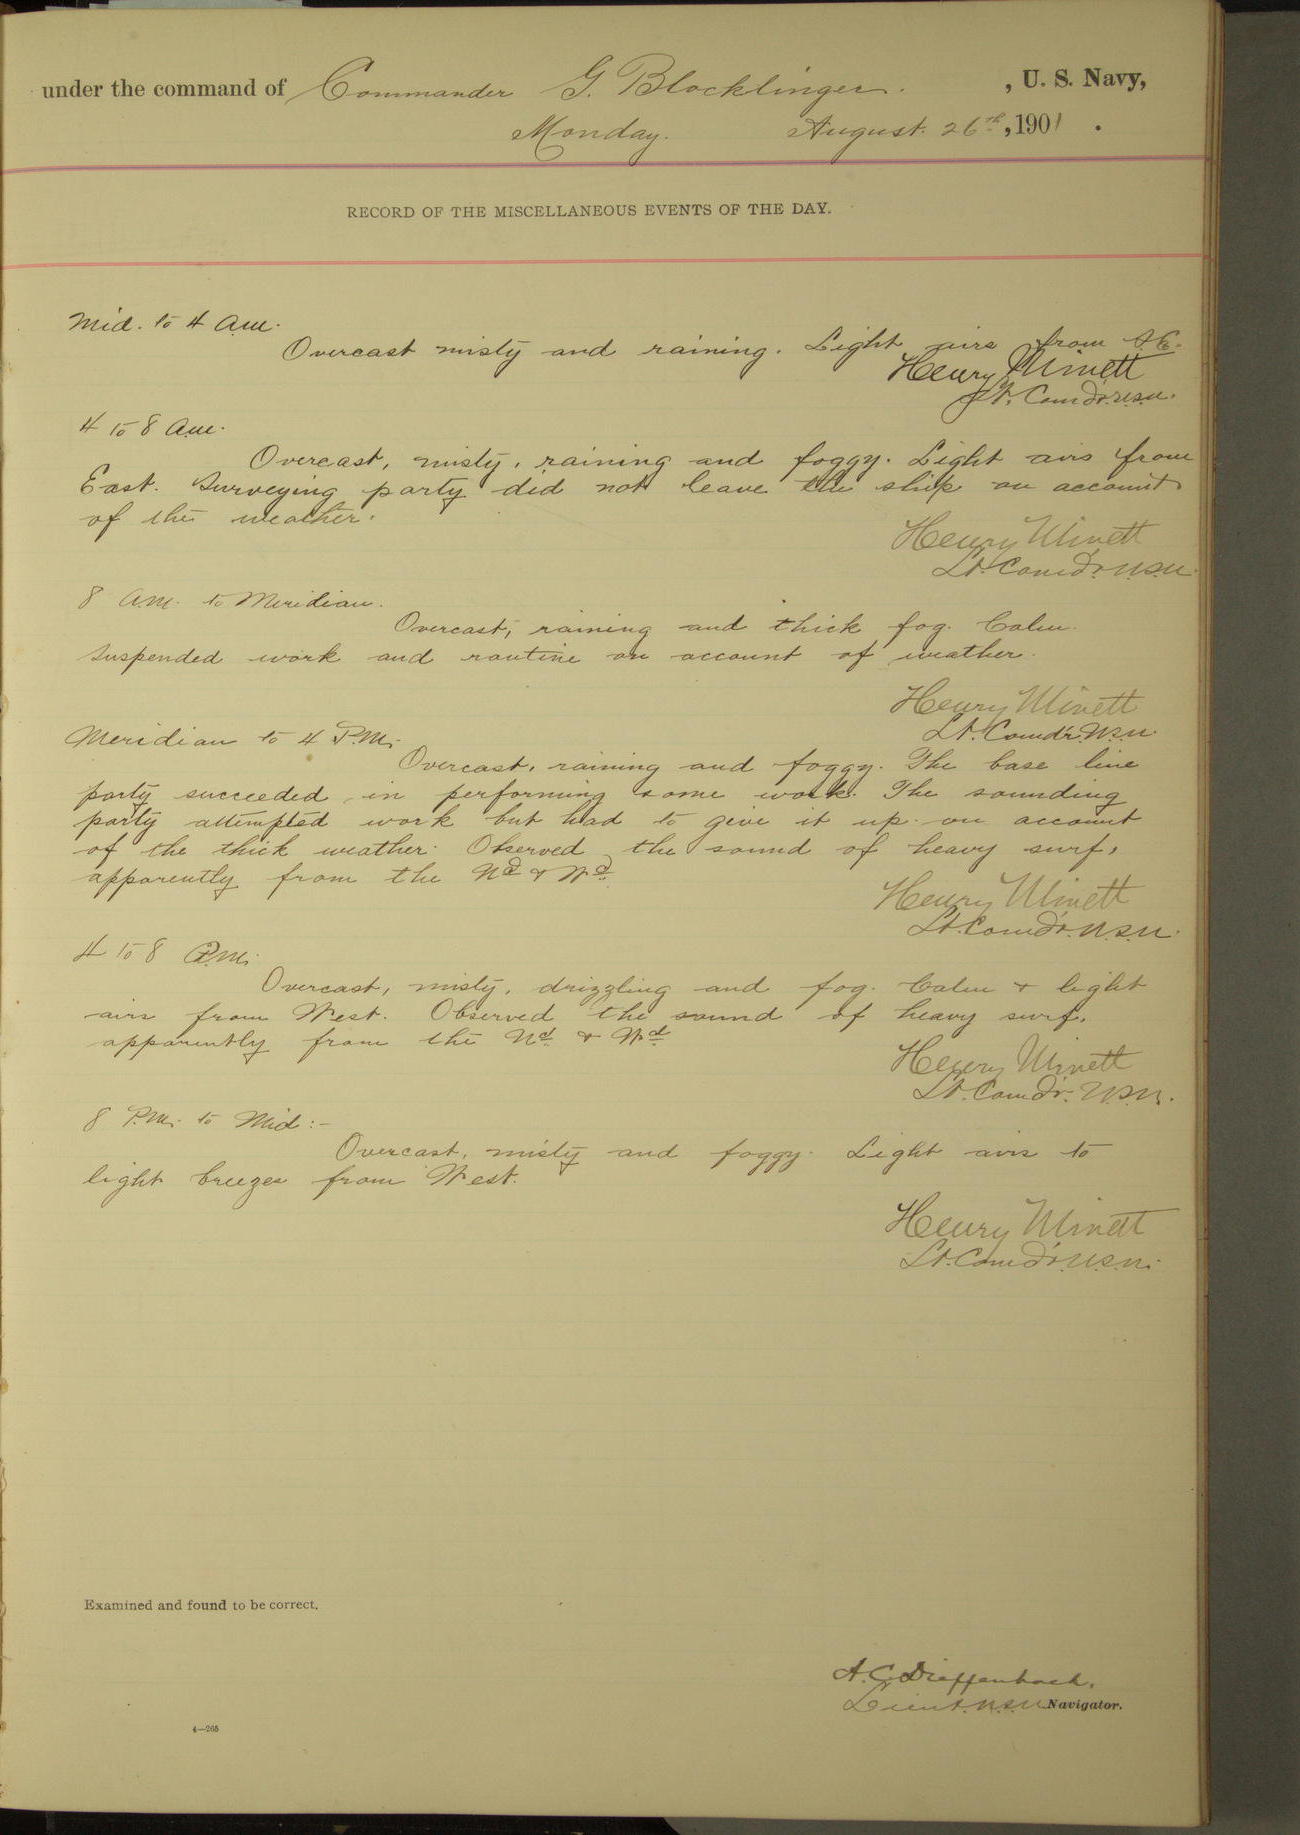 under the command of Commander G. Blocklinger. , U. S. Navy,
Monday. August. 26th, 1901.
RECORD OF THE MISCELLANEOUS EVENTS OF THE DAY.
Mid. to 4 A.M.
Overcast misty and raining. Light airs from S.E.
Henry Minett
Lt. Comdr. U.S.N.
4 to 8 A.M.
Overcast, misty, raining and foggy. Light airs from
East. Surveying party did not leave the ship on account
of the weather.
Henry Minett
Lt. Comdr. U.S.N.
8 A.M. to Meridian.
Overcast, raining and thick fog. Calm.
Suspended work and routine on account of weather.
Henry Minett
Lt. Comdr. U.S.N.
Meridian to 4 P.M.
Overcast, raining and foggy. The base line
party succeeded in performing some work. The sounding
party attempted work but had to give it up on account
of the thick weather. Observed the sound of heavy surf,
apparently from the Nd & Wd
Henry Minett
Lt. Comdr. U.S.N.
4 to 8 P.M.
Overcast, misty, drizzling and fog. Calm & light
airs from West. Observed the sound of heavy surf,
apparently from the Nd. & Wd.
Henry Minett
Lt. Comdr. U.S.N.
8 P.M. to Mid:-
Overcast, misty and foggy. Light airs to
light breezes from West.
Henry Minett
Lt. Comdr. U.S.N.
Examined and found to be correct.
A. C. Dieffenbach,
Lieut. U.S.N. Navigator.
4—265